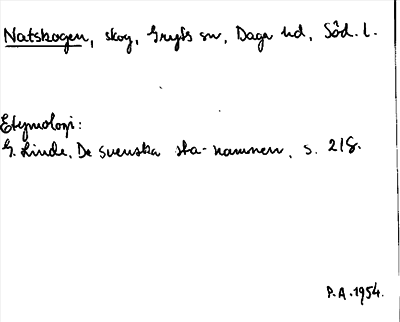 Natskogen, skog, Gryts sn, Daga hd, Söd. l.
Etymologi:
G. Linde, De svenska sta-namnen, s. 218.
P.A. 1954.